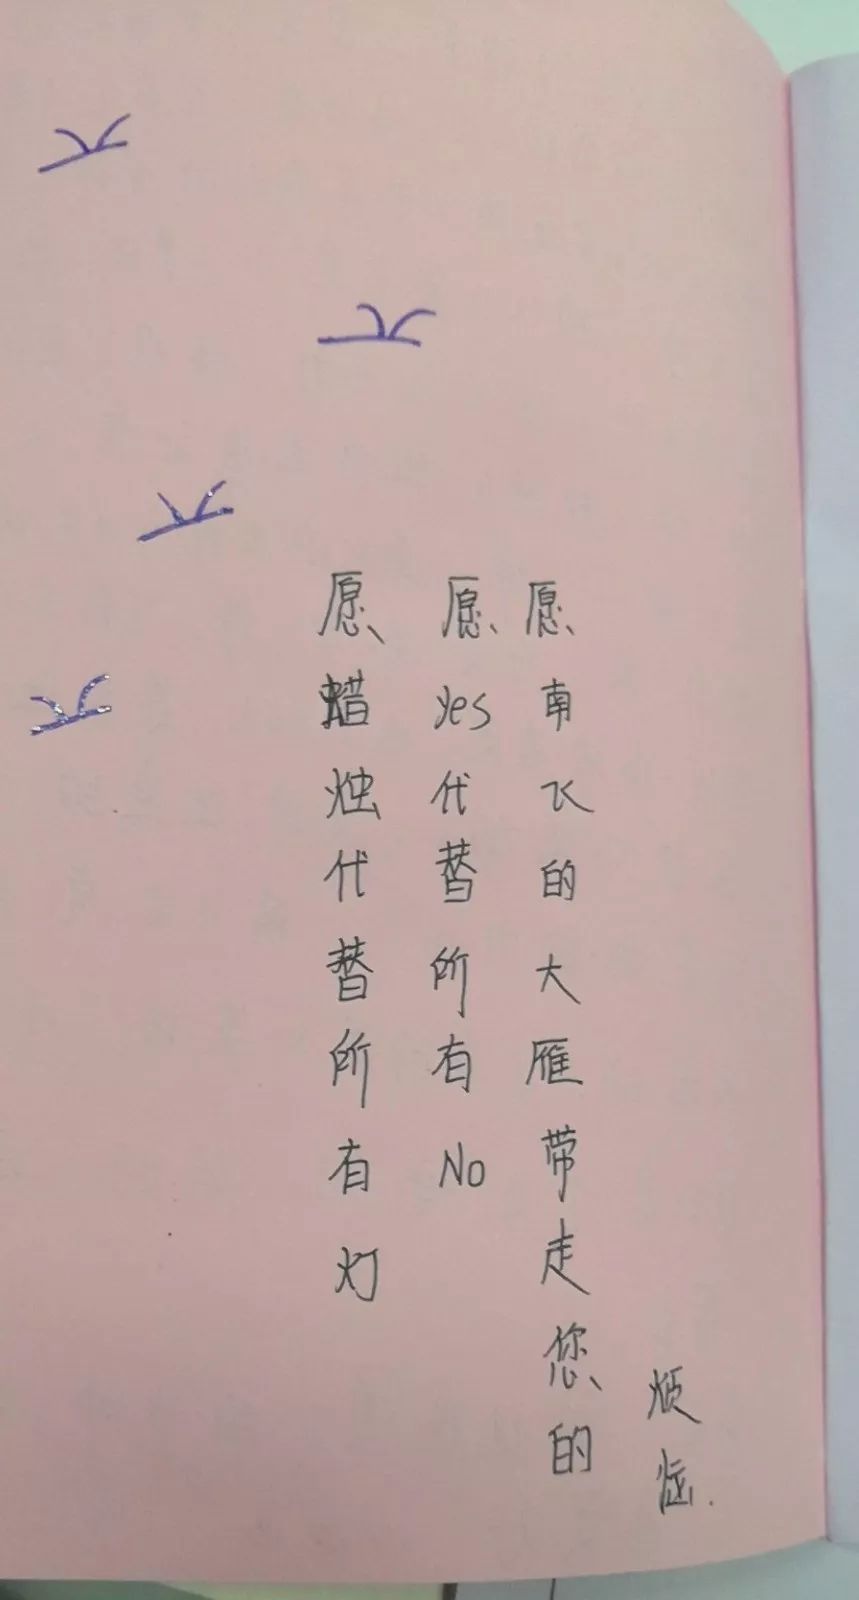 愿蜡烛代替所有灯
愿yes代替所有No
愿南飞的大雁带走您的
烦恼.